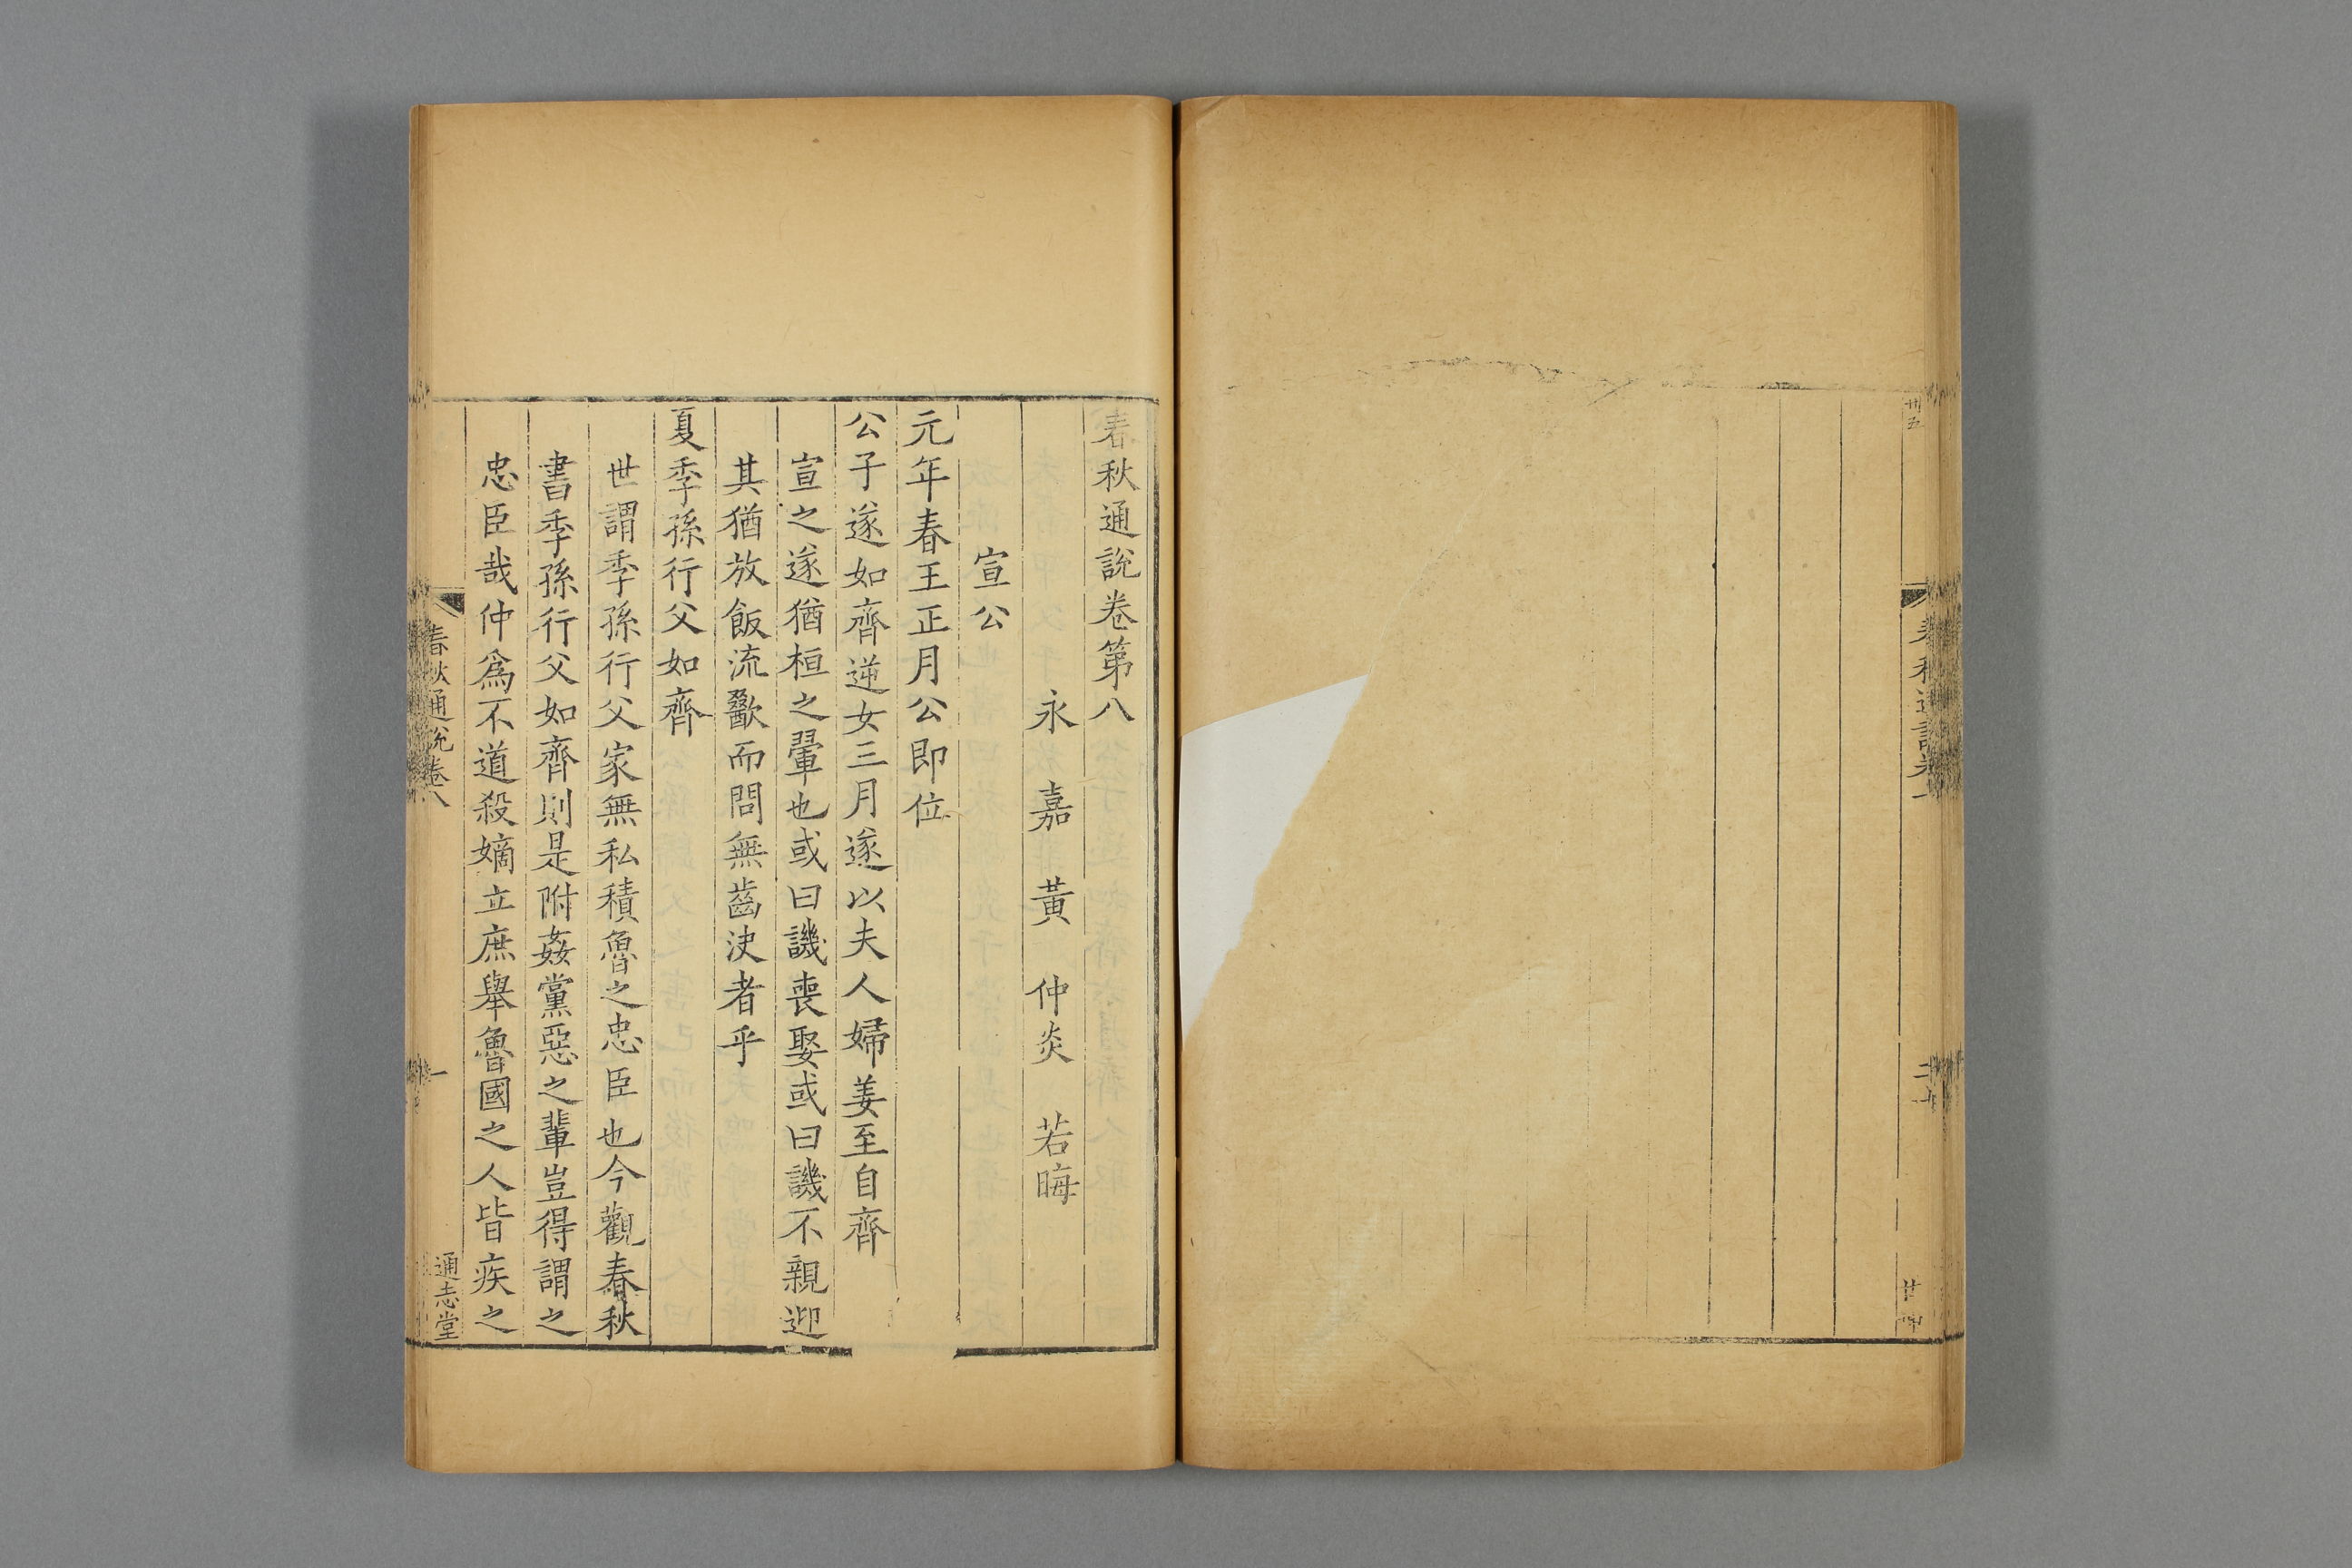 春秋通說卷第八
永嘉黃仲炎若晦
宣公
元年春王正月公即位
公子遂如齊逆女三月遂以夫人婦姜至自齊
宣之遂猶桓之翬也或曰譏喪娶或曰譏不親迎
其猶放飯流歠而問無齒決者乎
夏季孫行父如齊
世謂季孫行父家無私積魯之忠臣也今觀春秋
書季孫行父如齊則是附姦黨惡之輩豈得謂之
忠臣哉仲爲不道殺嫡立庶舉魯國之人皆疾之
春秋通說卷八
一
通志堂